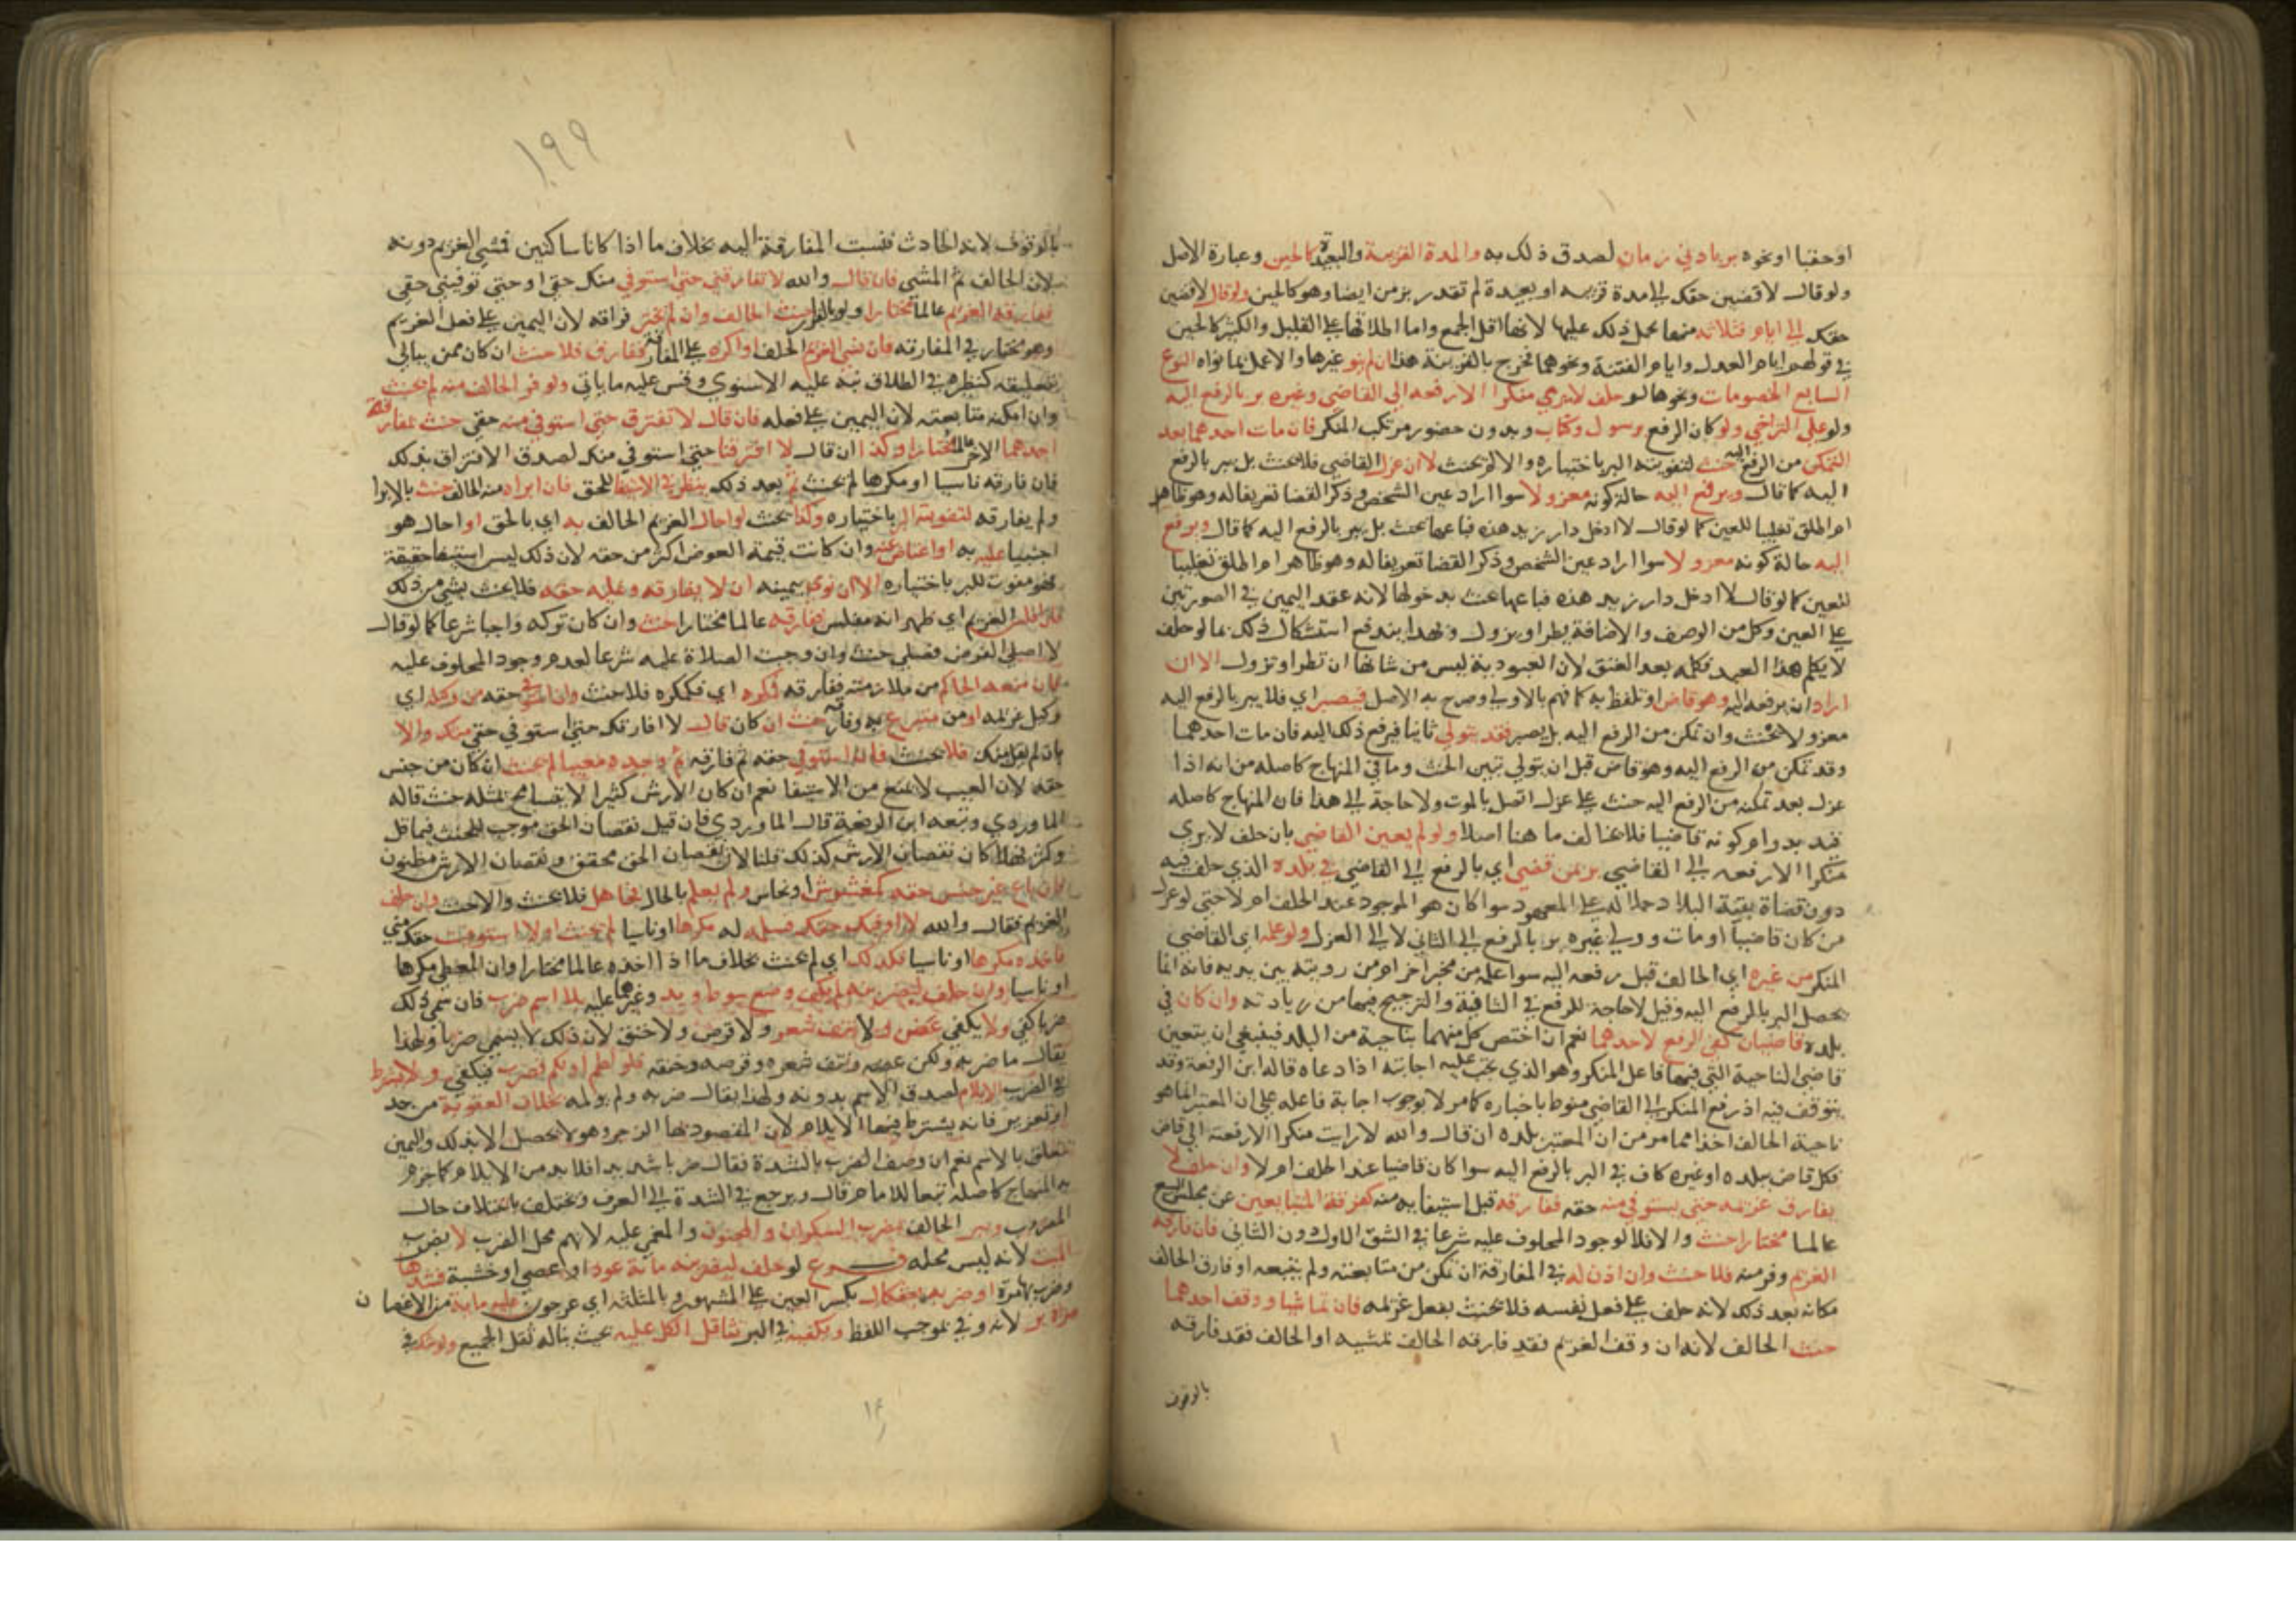 او حقبا او نحوه بر باد ني زمان لصدق ذلك به والمدة القريبة والبعيدة كالحين وعبارة الاصل
ولو قال لاقضين حقك الي مدة قريبه او بعيدة لم تقدر بزمن ايضا وهو كالحين ولو قال لاقضين
حقك الي ايام فثلاثة منها يحمل ذلك عليها لانها اقل الجمع واما اطلاقها علي القليل والكثير كالحين
في قولهم ايام العدل وايام الفتنة ونحوهما فخرج بالقرينة هذا ان لم ينو غيرها والا عمل بما نواه النوع
السابع الخصومات ونحوها لو حلف لا يري منكرا الا رفعه الي القاضي وغيره بر بالرفع اليه
ولو علي التراخي ولو كان الرفع برسول وكتاب وبدون حضور مرتكب المنكر فان مات احدهما بعد
التمكن من الرفع اليه حنث لتفويته البر باختياره والا لم يحنث لا ان عزل القاضي فلا يحنث بل يبر بالرفع
اليه كما قال ويرفع اليه حالة كونه معزولا سوا اراد عين الشخص وذكر القضا تعريفا له وهو ظاهر
ام اطلق تغليبا للعين كما لو قال لا ادخل دار زيد هذه فباعها يحنث بل يبر بالرفع اليه كما قال ويرفع
اليه حالة كونه معزولا سوا اراد عين الشخص وذكر القضا تعريفا له وهو ظاهر ام اطلق تغليبا
للعين كما لو قال لا ادخل دار زيد هذه فباعها يحنث بدخولها لانه عقد اليمين في الصورتين
علي العين وكل من الوصف والاضافة يطرا ويزول وبهذا يندفع استشكال ذلك بما لو حلف
لا يكلم هذا العبد فكلمه بعد العتق لان العبودية ليس من شانها ان تطرا وتزول الا ان
اراد ان يرفعه اليه وهو قاض او تلفظ به كما فهم بالاولي وصرح به الاصل فيصبر اي فلا يبر بالرفع اليه
معزولا ولا يحنث وان تمكن من الرفع اليه بل يصبر فقد يتولي ثانيا فيرفع ذلك اليه فان مات احدهما
وقد تمكن من الرفع اليه وهو قاض قبل ان يتولي تبين الحنث وما في المنهاج كاصله من انه اذا
عزل بعد تمكنه من الرفع اليه حنث علي عزل اتصل بالموت ولا حاجة الي هذا فان المنهاج كاصله
قيد بدوام كونه قاضيا فلا يخالف ما هنا اصلا ولو لم يعين القاضي بان حلف لا يري
منكرا الا رفعه الي القاضي بر بمن قضي اي بالرفع الي القاضي في بلده الذي حلف فيه
دون قضاة بقية البلاد حملا له علي المعهود سوا كان هو الموجود عند الحلف ام لا حتي لو عزل
من كان قاضيا او مات وولي غيره بر بالرفع الي الثاني لا الي العزل ولو علمه اي القاضي
المنكر من غيره اي الحالف قبل رفعه اليه سوا علمه من مخبر اخر ام من رويته بين يديه فانه انما
يحصل البر بالرفع اليه وقيل لا حاجة للرفع في الثانية والترجيح فيهما من زيادته وان كان في
بلده قاضيان كفي الرفع لاحدهما نعم ان اختص كل منهما بناحية من البلد فينبغي ان يتعين
قاضي الناحية التي فيها فاعل المنكر وهو الذي يجب عليه اجابته اذا دعاه قاله ابن الرفعة وقد
يتوقف فيه اذ رفع المنكر الي القاضي منوط باخباره كما مر لا بوجوب اجابة فاعله علي ان المعتبر انما هو
ناحية الحالف اخذا مما مر من ان المعتبر بلده ان قال والله لا رايت منكرا الا رفعته الي قاض
فكل قاض ببلده او غيره كاف في البر بالرفع اليه سوا كان قاضيا عند الحلف ام لا وان حلف لا
يفارق غريمه حتي يستوفي منه حقه ففارقه قبل استيفايه منه كفرقة المتبايعين عن مجلس البيع
عالما مختارا حنث والا فلا لوجود المحلوف عليه شرعا في الشق الاول دون الثاني فان فارقه
الغريم وفر منه فلا حنث وان اذن له في المفارقة ان تمكن من متابعته ولم يتبعه او فارق الحالف
مكانه بعد ذلك لانه حلف علي فعل نفسه فلا يحنث بفعل غريمه فان تماشيا ووقف احدهما
حنث الحالف لانه ان وقف الغريم فقد فارقه الحالف بمشيه او الحالف فقد فارقه
بالوقوف
١٩٩
بالوقوف لانه الحادث فنسبت المفارقة اليه بخلاف ما اذا كانا ساكنين فمشي الغريم دونه
لان الحالف ثم المشي فان قال والله لا تفارقني حتي استوفي منك حقي او حتي توفيني حقي
ففارقه الغريم عالما مختارا ولو بالفرار حنث الحالف وان لم يختر فراقه لان اليمين علي فعل الغريم
وهو مختار في المفارقه فان نسي الغريم الحلف او اكره علي المفارقة ففارق فلا حنث ان كان ممن يبالي
بتعليقه كنظيره في الطلاق نبه عليه الاسنوي وقس عليه ما ياتي ولو فر الحالف منه لم يحنث
وان امكنه متابعته لان اليمين علي فعله فان قال لا نفترق حتي استوفي منه حقي حنث بمفارقة
احدهما الاخر عالما مختارا وكذا ان قال لا افترقنا حتي استوفي منك لصدق الافتراق بذلك
فان فارقه ناسيا او مكرها لم يحنث ثم بعد ذلك ينظر في الاستيفا للحق فان ابراه منه الحالف حنث بالابرا
ولم يفارقه لتفويته البر باختياره وكذا يحنث لو احال الغريم الحالف به اي بالحق او احال هو
اجنبيا عليه به او اعتاض عنه وان كانت قيمة العوض اكثر من حقه لان ذلك ليس استيفا حقيقة
فهو مفوت للبر باختياره الا ان نوي بيمينه ان لا يفارقه وعليه حقه فلا يحنث بشي من ذلك
فلو افلس الغريم اي ظهر انه مفلس ففارقه عالما مختارا حنث وان كان تركه واجبا شرعا كما لو قال
لا اصلي الفرض فصلي حنث وان وجبت الصلاة عليه شرعا لعدم وجود المحلوف عليه
فان منعه الحاكم من ملازمته ففارقه فمكره اي فكمكره فلا حنث وان استوفي حقه من وكيله اي
وكيل غريمه او من متبرع به وفارقه حنث ان كان قال لا افارقك حتي استوفي حقي منك والا
بان لم يقل منك فلا يحنث فان استوفي حقه ثم فارقه ثم وجده معيبا لم يحنث ان كان من جنس
حقه لان العيب لا يمنع من الاستيفا نعم ان كان الارش كثيرا لا يتسامح بمثله حنث قاله
الماوردي وتبعه ابن الرفعة قال الماوردي فان قيل نقصان الحق موجب للحنث فيما قل
وكثر فهلا كان نقصان الارش كذلك قلنا لان نقصان الحق محقق ونقصان الارش مظنون
فان باع غير جنس حقه كمغشوش او نحاس ولم يعلم بالحال فجاهل فلا يحنث والا حنث وان حلف
الغريم فقال والله لا اوفيك حقك فسلمه له مكرها او ناسيا لم يحنث او لا استوفيت حقك مني
فاخذه مكرها او ناسيا فكذلك اي لم يحنث بخلاف ما اذا اخذه عالما مختارا وان المعطي مكرها
او ناسيا وان حلف ليضربنه لم يكفي وضع سوط ويد وغيرهما عليه بلا اسم ضرب فان سمي ذلك
ضربا كفي ولا يكفي عض ولا نتف شعر ولا قرص ولا خنق لان ذلك لا يسمي ضربا ولهذا
يقال ما ضربه ولكن عضه ونتف شعره وقرصه وخنقه فلو لطم او لكم فضرب فيكفي ولا يشترط
في الضرب الايلام لصدق الاسم بدونه ولهذا يقال ضربه ولم يولمه بخلاف العقوبة من حد
او تعزير فانه يشترط فيهما الايلام لان المقصود بها الزجر وهو لا يحصل الا بذلك واليمين
تتعلق بالاسم نعم ان وصف الضرب بالشدة فقال ضربا شديدا فلا بد من الايلام كما جزم
به المنهاج كاصله تبعا للامام قال ويرجع في الشدة الي العرف وتختلف باختلاف حال
المضروب ويبر الحالف بضرب السكران والمجنون والمغمي عليه لانهم محل الضرب لا بضرب
الميت لانه ليس محله فرع لو حلف ليضربنه مائة عود او عصي او خشبة فشدها
وضربه بها مرة او ضربه بعثكال بكسر العين علي المشهور وبالمثلثة اي عرجون عليه ماية من الاغصان
مرة بر لانه وفي بموجب اللفظ ويكفيه في البر تثاقل الكل عليه بحيث يناله ثقل الجميع ولو شك في